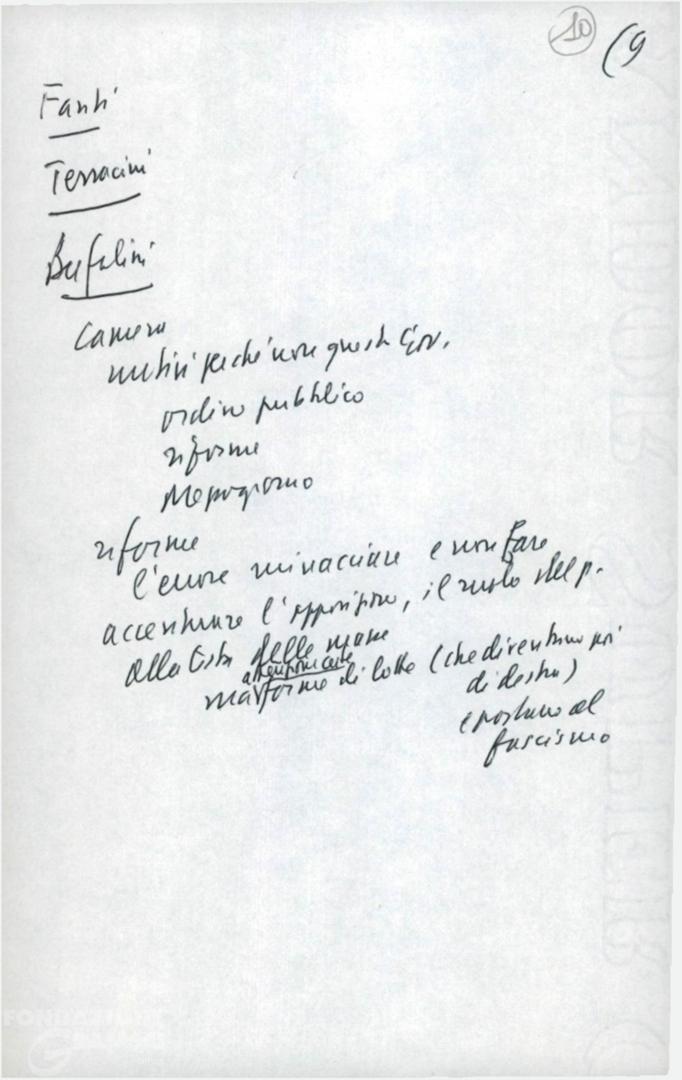 10
(9
Fanti
Terracini
Bufalini
Camera
motivi perché non questo Gov.
ordine pubblico
riforme
Mezzogiorno
riforme
l'errore minacciare e non fare
accentuare l'opposizione, il ruolo del p.
alla testa delle masse
attenzione certe
ma forme di lotte (che diventano poi
di destra)
e portano al
fascismo
FONDAZIONE